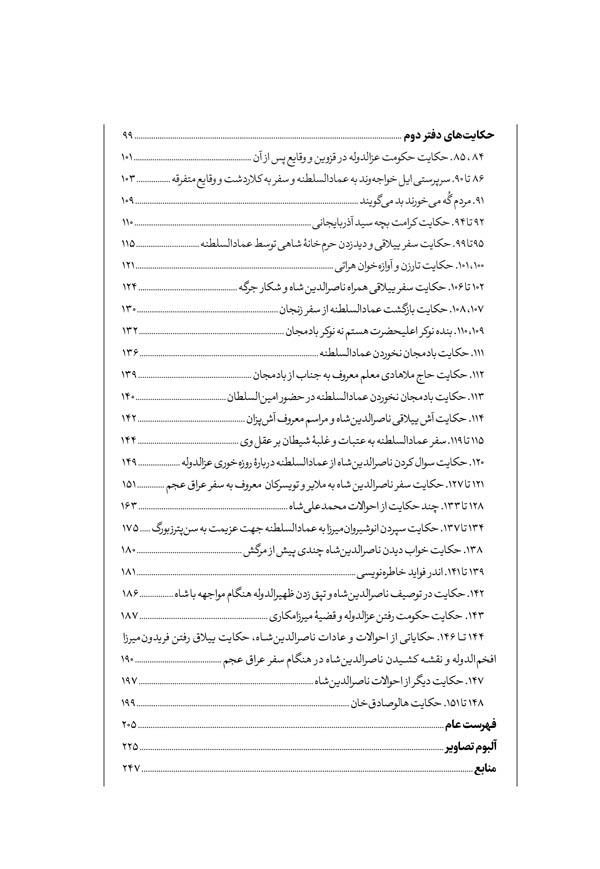 حکایت‌های دفتر دوم ........ ۹۹
۸۴، ۸۵. حکایت حکومت عزالدوله در قزوین و وقایع پس از آن ........ ۱۰۱
۸۶ تا ۹۰. سرپرستی ایل خواجه‌وند به عمادالسلطنه و سفر به کلاردشت و وقایع متفرقه ........ ۱۰۳
۹۱. مردم گُه می‌خورند بد می‌گویند ........ ۱۰۹
۹۲ تا ۹۴. حکایت کرامت بچه سید آذربایجانی ........ ۱۱۰
۹۵ تا ۹۹. حکایت سفر ییلاقی و دید زدن حرم‌خانهٔ شاهی توسط عمادالسلطنه ........ ۱۱۵
۱۰۰، ۱۰۱. حکایت تارزن و آوازه‌خوان هراتی ........ ۱۲۱
۱۰۲ تا ۱۰۶. حکایت سفر ییلاقی همراه ناصرالدین شاه و شکار جرگه ........ ۱۲۴
۱۰۷، ۱۰۸. حکایت بازگشت عمادالسلطنه از سفر زنجان ........ ۱۳۰
۱۰۹، ۱۱۰. بنده نوکر اعلیحضرت هستم نه نوکر بادمجان ........ ۱۳۲
۱۱۱. حکایت بادمجان نخوردن عمادالسلطنه ........ ۱۳۶
۱۱۲. حکایت حاج ملاهادی معلم معروف به جناب از بادمجان ........ ۱۳۹
۱۱۳. حکایت بادمجان نخوردن عمادالسلطنه در حضور امین‌السلطان ........ ۱۴۰
۱۱۴. حکایت آش ییلاقی ناصرالدین‌شاه و مراسم معروف آش‌پزان ........ ۱۴۲
۱۱۵ تا ۱۱۹. سفر عمادالسلطنه به عتبات و غلبهٔ شیطان بر عقل وی ........ ۱۴۴
۱۲۰. حکایت سوال کردن ناصرالدین‌شاه از عمادالسلطنه دربارهٔ روزه‌خوری عزالدوله ........ ۱۴۹
۱۲۱ تا ۱۲۷. حکایت سفر ناصرالدین شاه به ملایر و تویسرکان معروف به سفر عراق عجم ........ ۱۵۱
۱۲۸ تا ۱۳۳. چند حکایت از احوالات محمدعلی‌شاه ........ ۱۶۳
۱۳۴ تا ۱۳۷. حکایت سپردن انوشیروان‌میرزا به عمادالسلطنه جهت عزیمت به سن‌پترزبورگ ........ ۱۷۵
۱۳۸. حکایت خواب دیدن ناصرالدین‌شاه چندی پیش از مرگش ........ ۱۸۰
۱۳۹ تا ۱۴۱. اندر فواید خاطره‌نویسی ........ ۱۸۱
۱۴۲. حکایت در توصیف ناصرالدین‌شاه و تپق زدن ظهیرالدوله هنگام مواجهه با شاه ........ ۱۸۶
۱۴۳. حکایت حکومت رفتن عزالدوله و قضیهٔ میرزامکاری ........ ۱۸۷
۱۴۴ تا ۱۴۶. حکایاتی از احوالات و عادات ناصرالدین‌شاه، حکایت ییلاق رفتن فریدون‌میرزا
افخم‌الدوله و نقشه کشیدن ناصرالدین‌شاه در هنگام سفر عراق عجم ........ ۱۹۰
۱۴۷. حکایت دیگر از احوالات ناصرالدین‌شاه ........ ۱۹۷
۱۴۸ تا ۱۵۱. حکایت هالوصادق‌خان ........ ۱۹۹
فهرست عام ........ ۲۰۵
آلبوم تصاویر ........ ۲۲۵
منابع ........ ۲۴۷